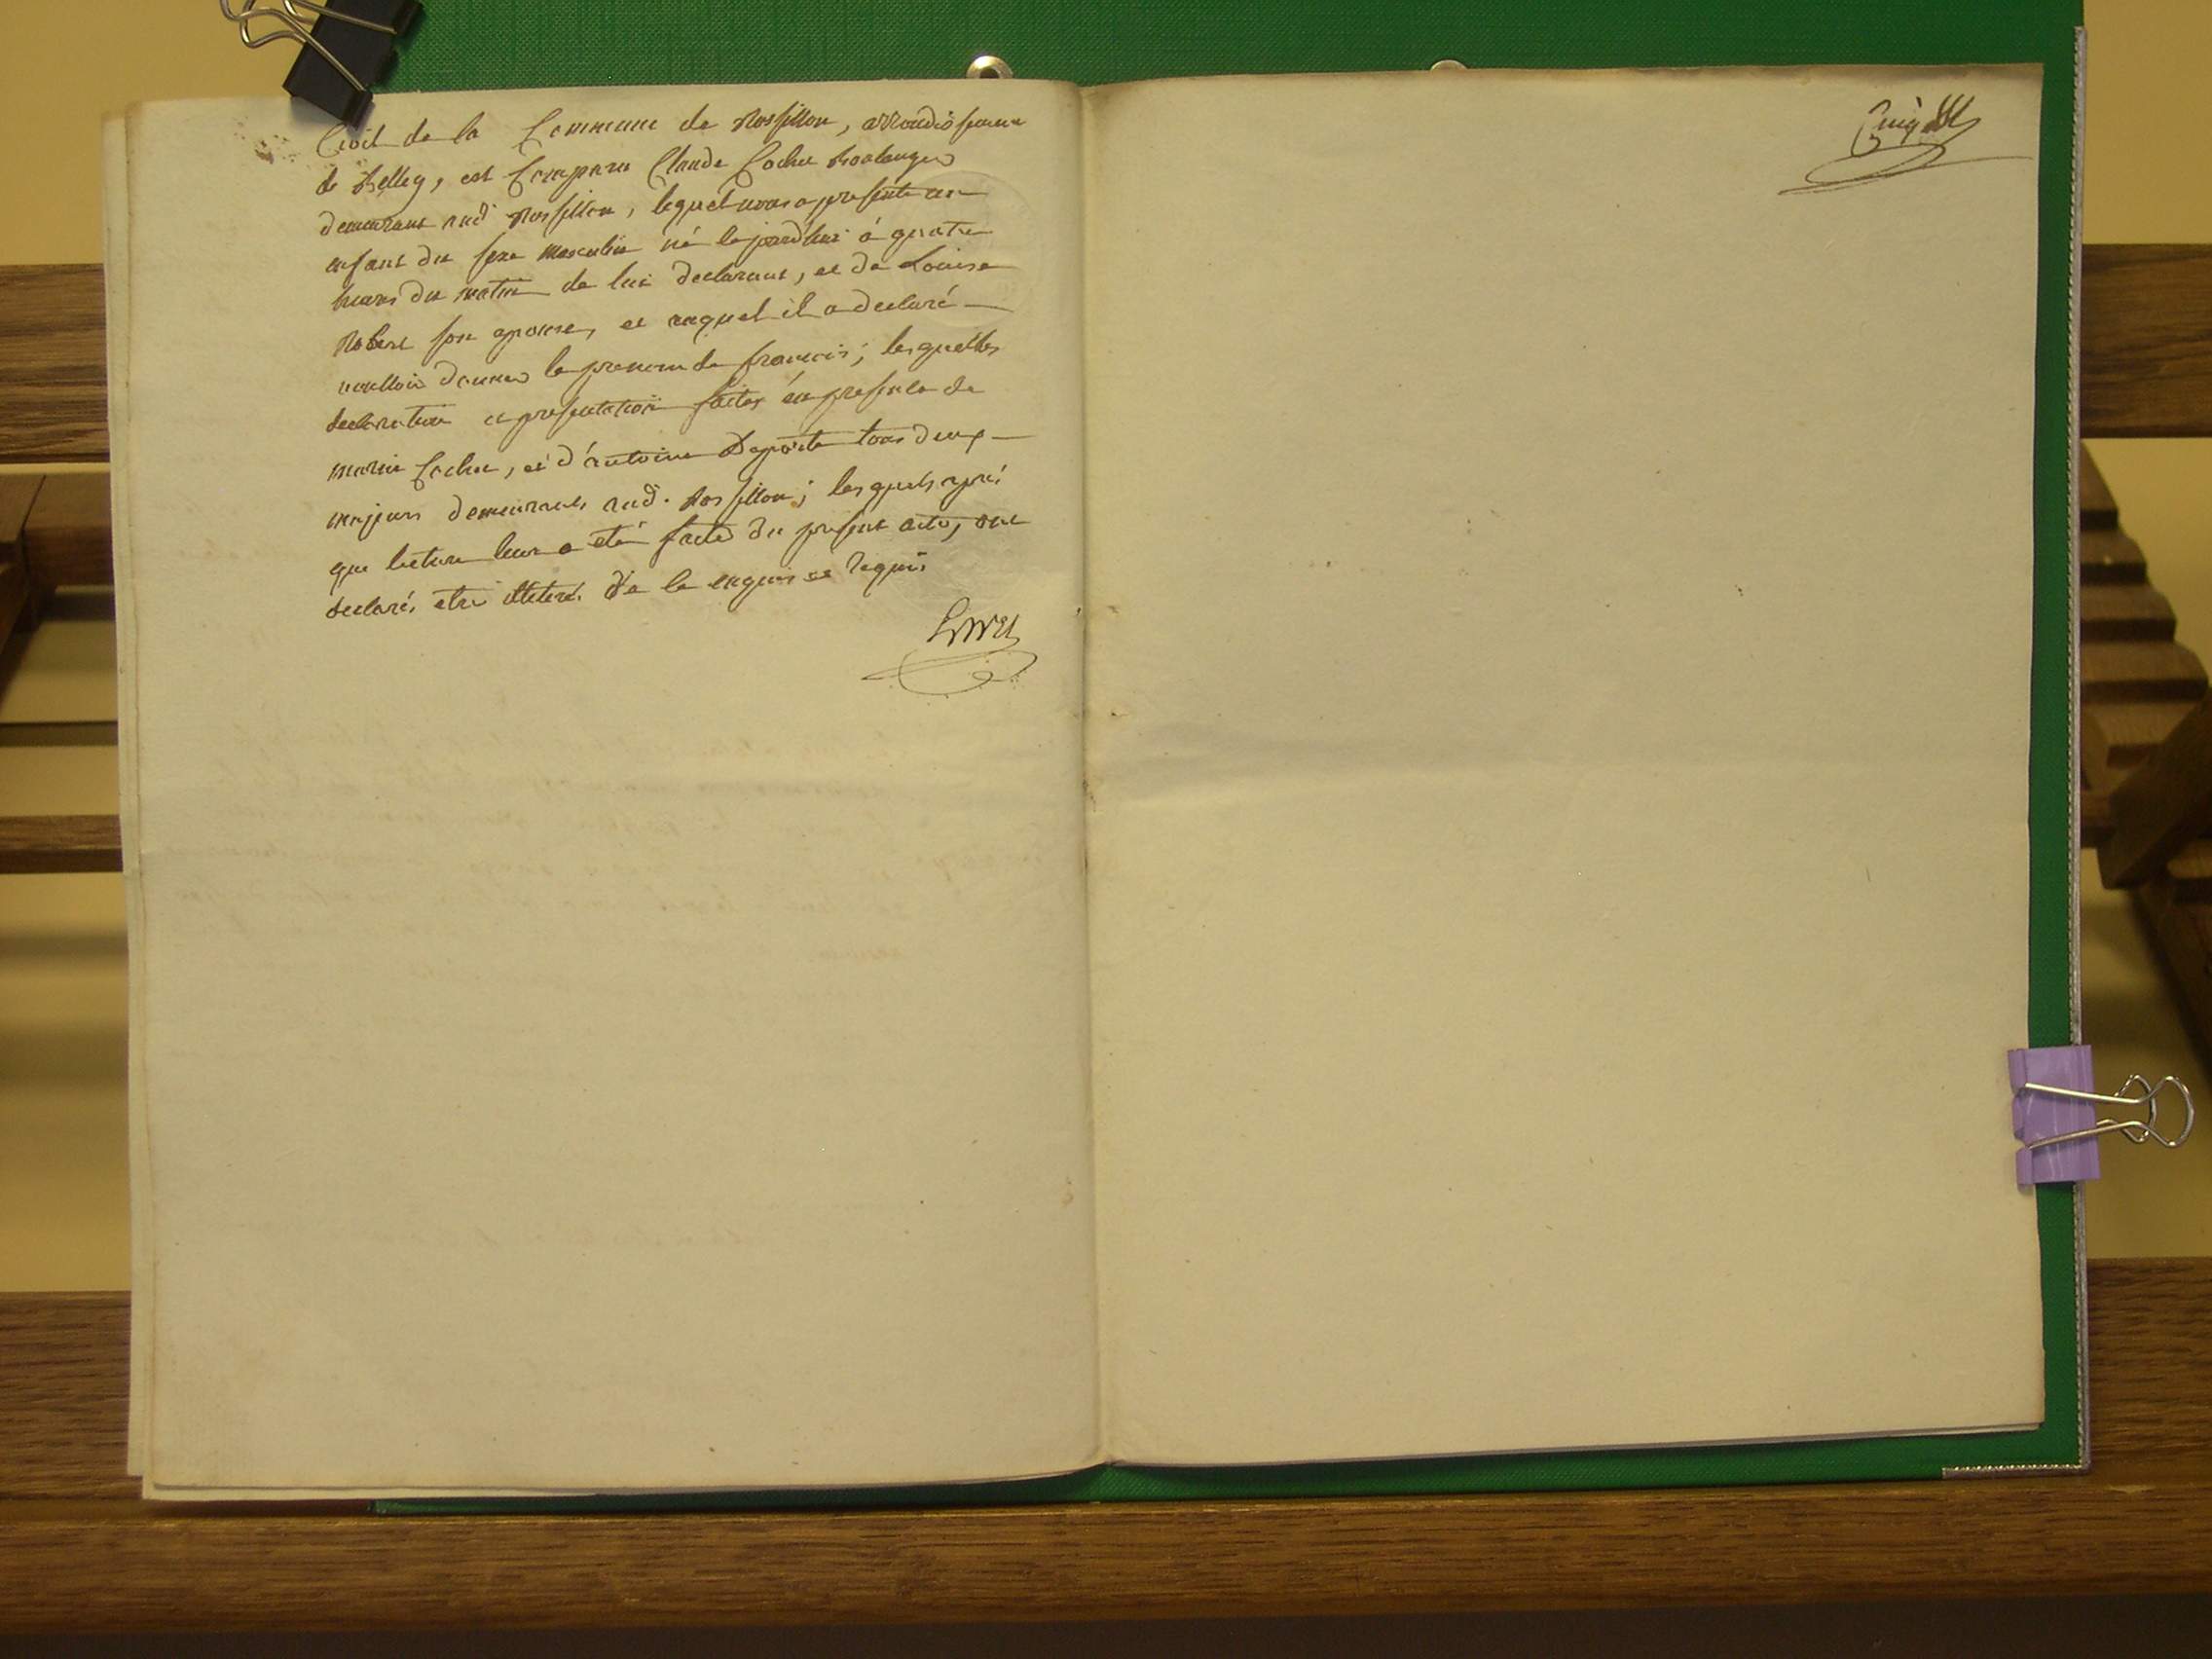 Civil de la Commune de Rossillon, arrondissement
de Belley, est Comparu Claude Cochet Boulanger
demeurant aud Rossillon, lequel nous a presenté un
enfant du sexe masculin né le jourd'hui á quatre
heures du matin de lui declarant, et de Louise
Robert son epouse, et auquel il a declaré
voulloir donner le prenom de françois; lesquelles
declaration et presentation faites én presence de
marin Cochet, et d'antoine Deporte tous deux
majeurs demeurants aud. Rossillon; lesquels aprés
que lecture leur a été faite du present acte, ont
declarés etre illiteré. De ce enquis et Requis